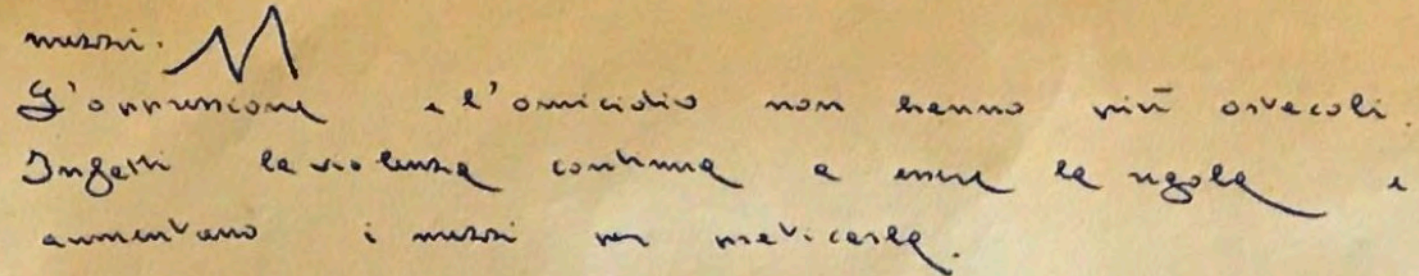 mezzi. M
L'oppressione e l'omicidio non hanno più ostacoli.
Infatti la violenza continua a essere la regola e
aumentano i mezzi per praticarla.